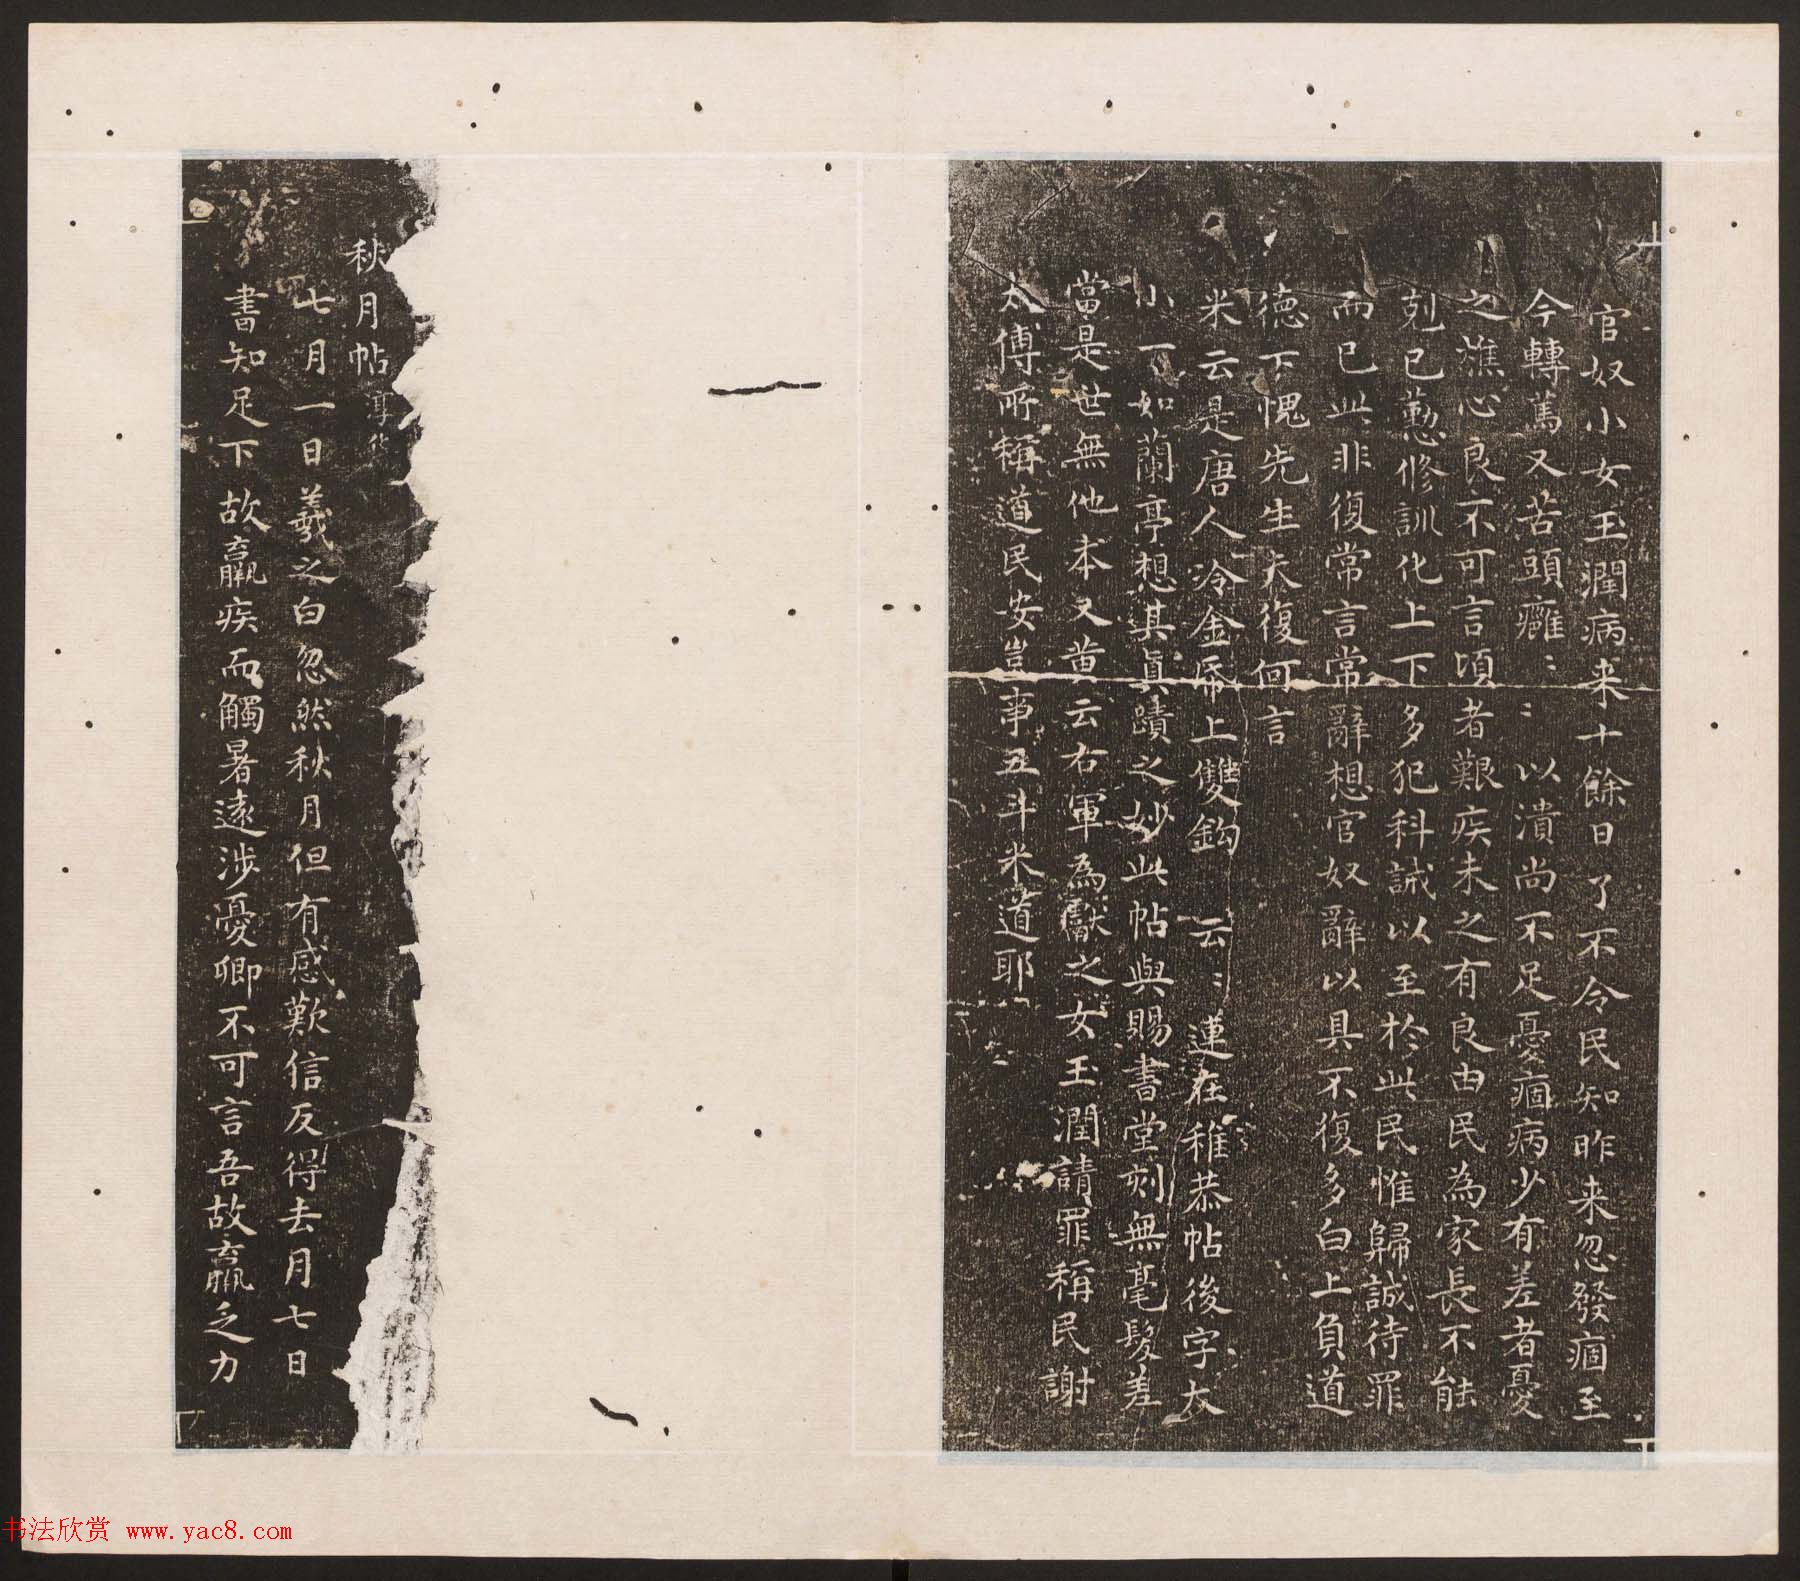 官奴小女玉潤病来十餘日了不令民知昨来忽發痼至
今轉篤又苦頭癰〻〻以潰尚不足憂痼病少有差者憂
之燋心良不可言頃者艱疾未之有良由民為家長不能
剋己懃修訓化上下多犯科誡以至於此民惟歸誠待罪
而已此非復常言常辭想官奴辭以具不復多白上負道
德下愧先生夫復何言
米云是唐人冷金帋上雙鈎 云〻蓮在稚恭帖後字大
小一如蘭亭想其真蹟之妙此帖與賜書堂刻無毫髮差
當是世無他本又黄云右軍為獻之女玉潤請罪稱民謝
太傅所稱道民安豈事五斗米道耶
秋月帖 淳化
七月一日羲之白忽然秋月但有感歎信反得去月七日
書知足下故羸疾而觸暑遠涉憂卿不可言吾故羸乏力
书法欣赏 www.yac8.com